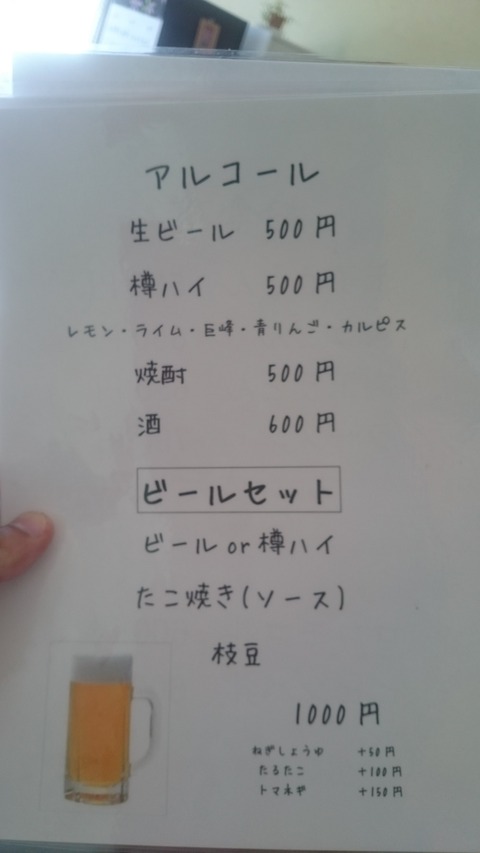 アルコール
生ビール 500円
樽ハイ 500円
レモン・ライム・巨峰・青りんご・カルピス
焼酎 500円
酒 600円
ビールセット
ビールor樽ハイ
たこ焼き(ソース)
枝豆
1000円
ねぎしょうゆ +50円
たるたこ +100円
トマネギ +150円